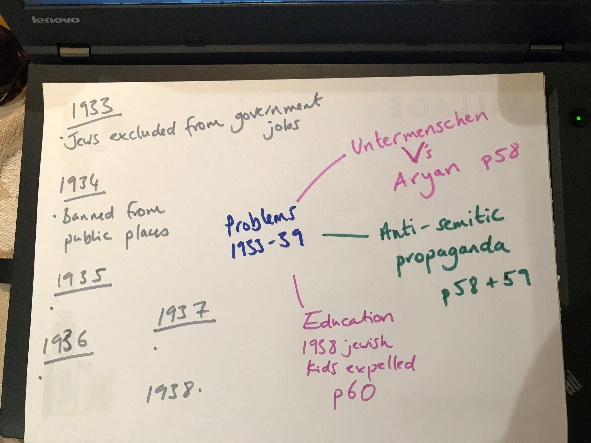 lenovo
1933
· Jews excluded from government
jobs
1934
· Banned from
public places
1935
·
1936
·
1937
·
1938.
Problems
1933-39
Untermenschen
V's
Aryan p58
Anti-semitic
propaganda
p58 + 59
Education
1938 jewish
kids expelled
p60